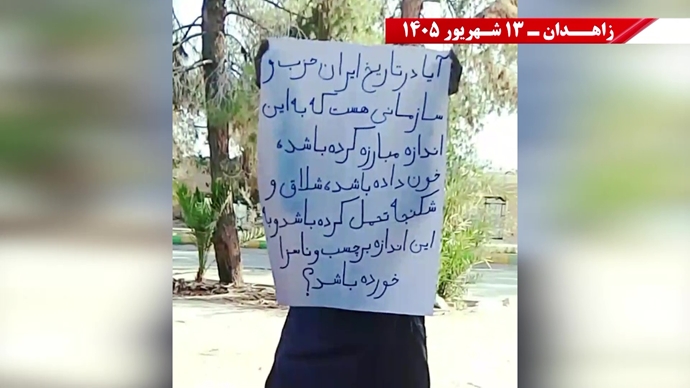 زاهدان – ۱۳ شهریور ۱۴۰۵
آیا در تاریخ ایران، حزب و
سازمانی هست که به این
اندازه مبارزه کرده باشد،
خون داده باشد، شلاق و
شکنجه تحمل کرده باشد و با
این اندازه برچسب و ناسزا
خورده باشد؟